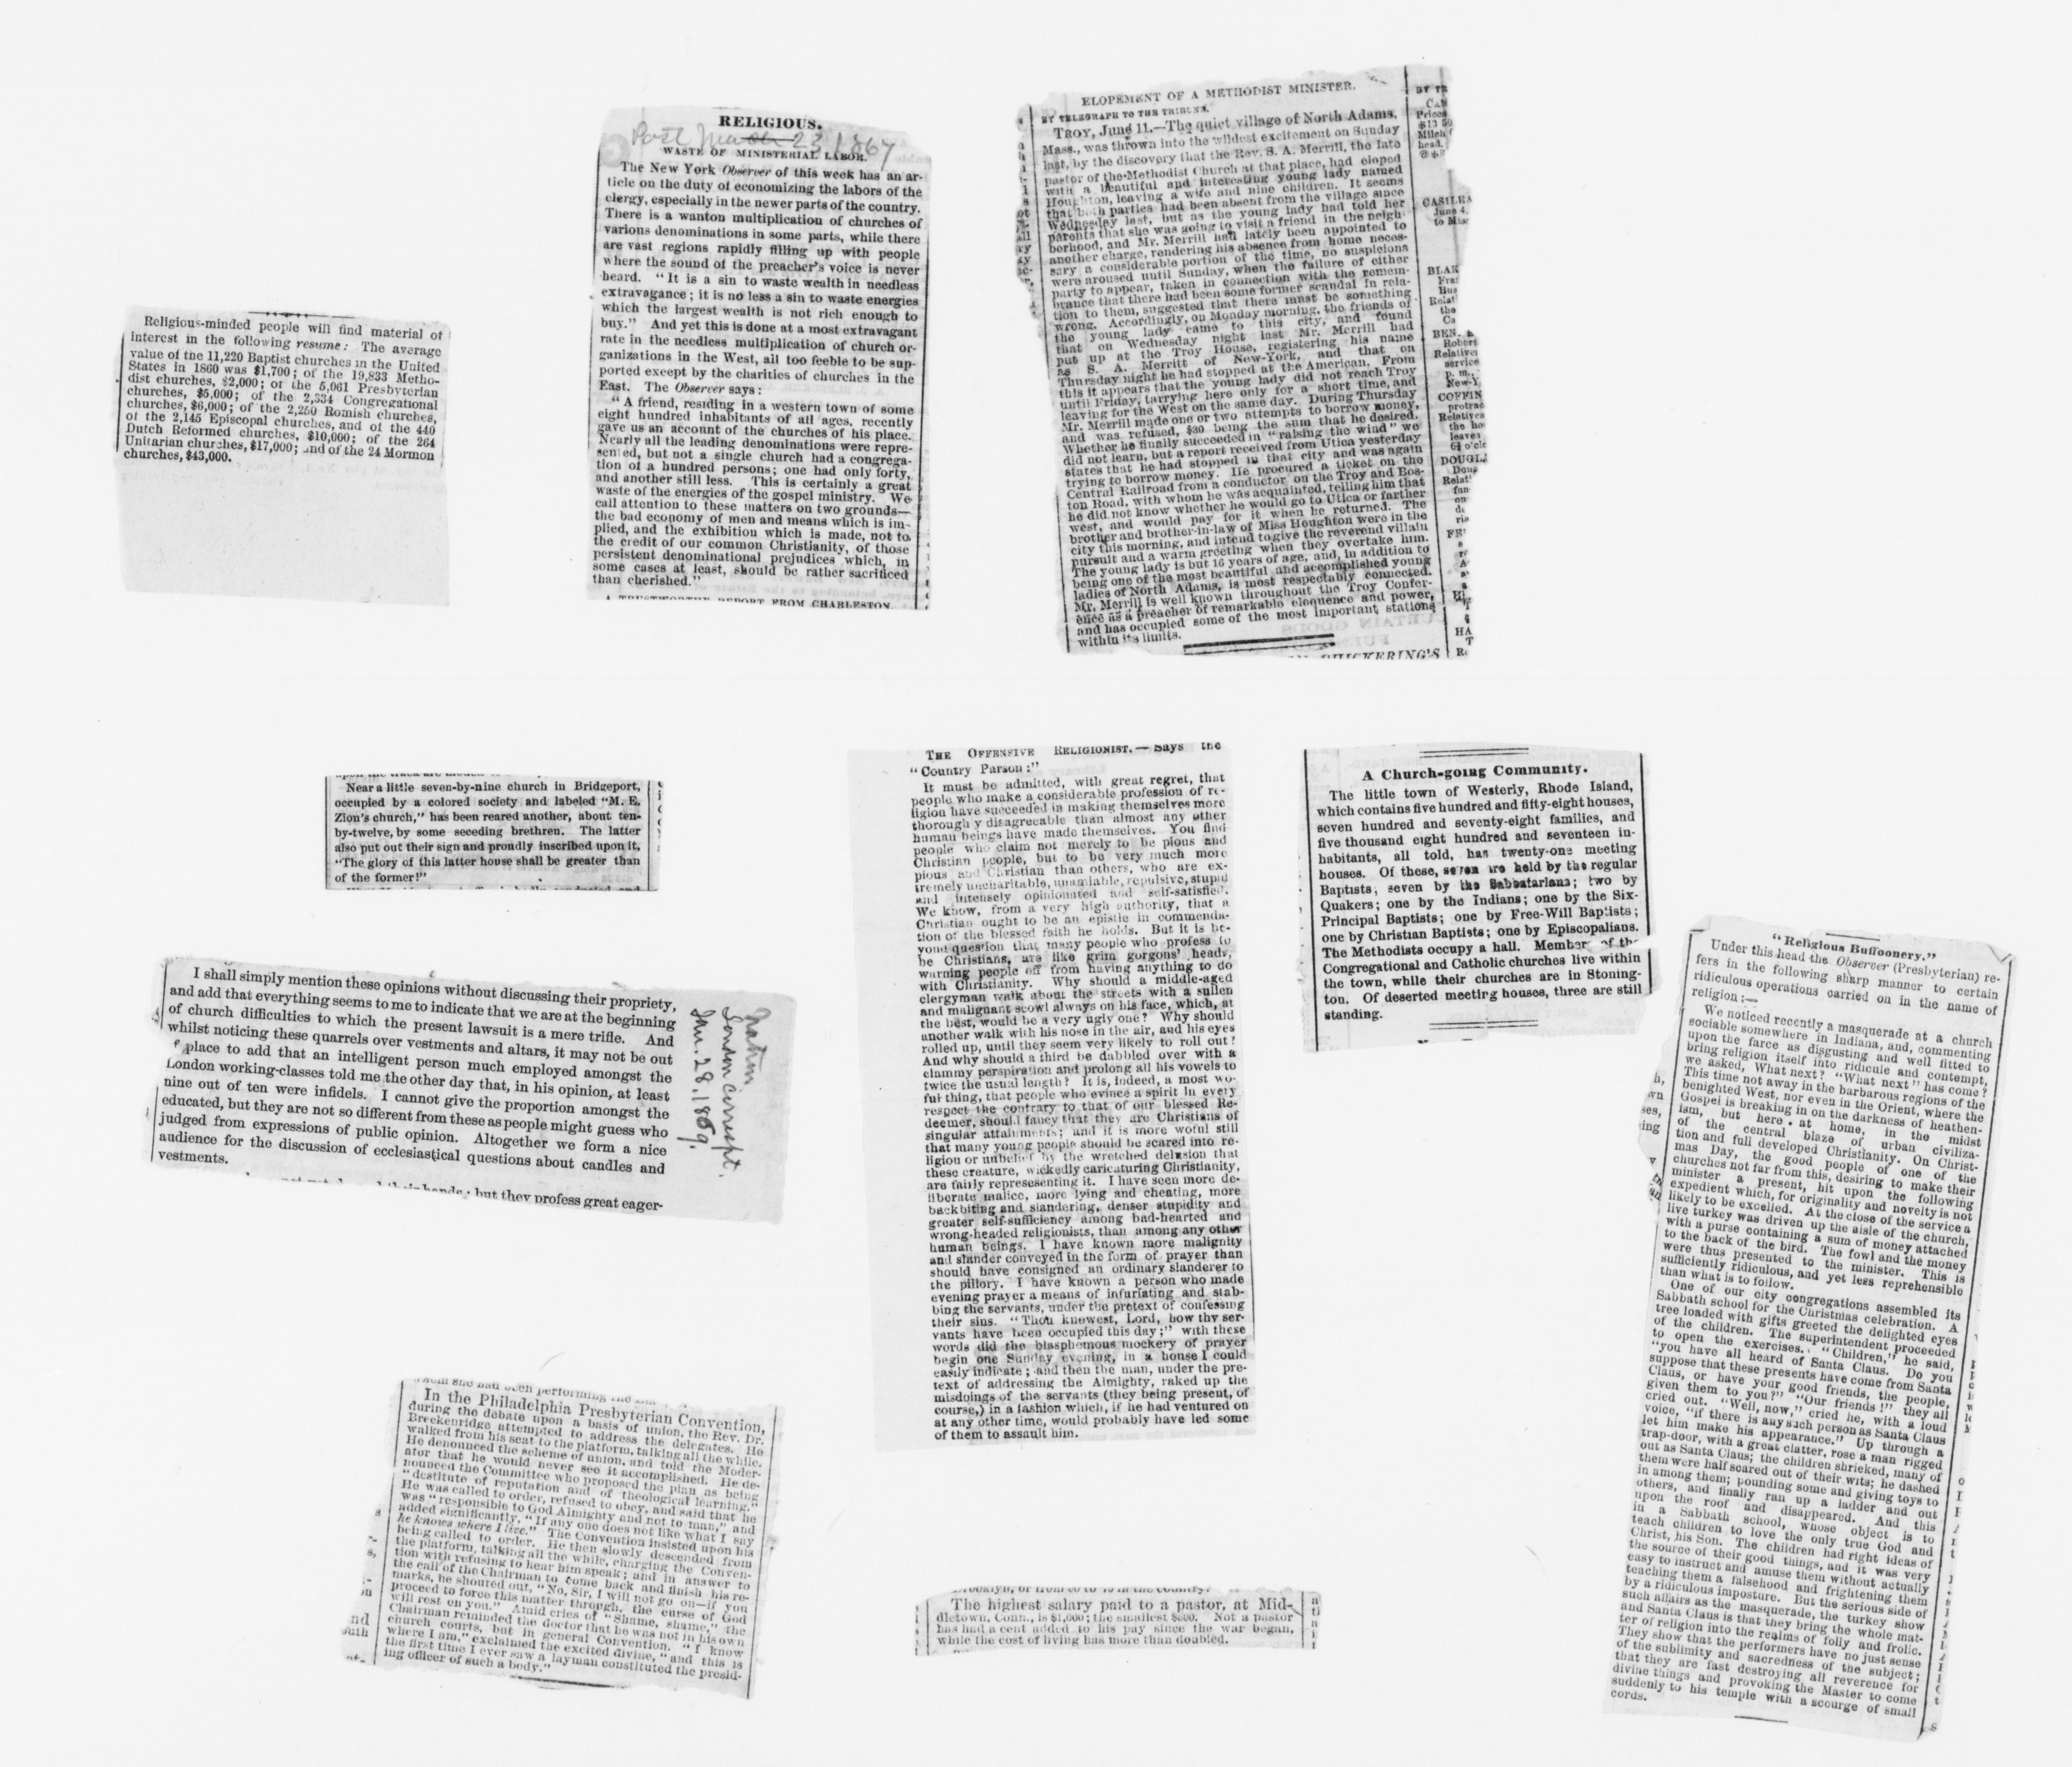 Religious-minded people will find material of
interest in the following resume: The average
value of the 11,220 Baptist churches in the United
States in 1860 was $1,700; of the 19,833 Metho-
dist churches, $2,000; of the 5,061 Presbyterian
churches, $5,000; of the 2,334 Congregational
churches, $6,000; of the 2,250 Romish churches,
of the 2,145 Episcopal churches, and of the 440
Dutch Reformed churches, $10,000; of the 264
Unitarian churches, $17,000; and of the 24 Mormon
churches, $43,000.
RELIGIOUS.
Post March 23 1867
WASTE OF MINISTERIAL LABOR.
The New York Observer of this week has an ar-
ticle on the duty of economizing the labors of the
clergy, especially in the newer parts of the country.
There is a wanton multiplication of churches of
various denominations in some parts, while there
are vast regions rapidly filling up with people
where the sound of the preacher's voice is never
heard. "It is a sin to waste wealth in needless
extravagance; it is no less a sin to waste energies
which the largest wealth is not rich enough to
buy." And yet this is done at a most extravagant
rate in the needless multiplication of church or-
ganizations in the West, all too feeble to be sup-
ported except by the charities of churches in the
East. The Observer says:
"A friend, residing in a western town of some
eight hundred inhabitants of all ages, recently
gave us an account of the churches of his place.
Nearly all the leading denominations were repre-
sented, but not a single church had a congrega-
tion of a hundred persons; one had only forty,
and another still less. This is certainly a great
waste of the energies of the gospel ministry. We
call attention to these matters on two grounds—
the bad economy of men and means which is im-
plied, and the exhibition which is made, not to
the credit of our common Christianity, of those
persistent denominational prejudices which, in
some cases at least, should be rather sacrificed
than cherished."
A TRUSTWORTHY REPORT FROM CHARLESTON
ELOPEMENT OF A METHODIST MINISTER.
BY TELEGRAPH TO THE TRIBUNE.
TROY, June 11.—The quiet village of North Adams,
Mass., was thrown into the wildest excitement on Sunday
last, by the discovery that the Rev. S. A. Merrill, the late
pastor of the Methodist Church at that place, had eloped
with a beautiful and interesting young lady named
Houghton, leaving a wife and nine children. It seems
that both parties had been absent from the village since
Wednesday last, but as the young lady had told her
parents that she was going to visit a friend in the neigh-
borhood, and Mr. Merrill had lately been appointed to
another charge, rendering his absence from home neces-
sary a considerable portion of the time, no suspicions
were aroused until Sunday, when the failure of either
party to appear, taken in connection with the remem-
brance that there had been some former scandal in rela-
tion to them, suggested that there must be something
wrong. Accordingly, on Monday morning, the friends of
the young lady came to this city, and found
that on Wednesday night last Mr. Merrill had
put up at the Troy House, registering his name
as S. A. Merritt of New-York, and that on
Thursday night he had stopped at the American. From
this it appears that the young lady did not reach Troy
until Friday, tarrying here only for a short time, and
leaving for the West on the same day. During Thursday
Mr. Merrill made one or two attempts to borrow money,
and was refused, $30 being the sum that he desired.
Whether he finally succeeded in "raising the wind" we
did not learn, but a report received from Utica yesterday
states that he had stopped in that city and was again
trying to borrow money. He procured a ticket on the
Central Railroad from a conductor on the Troy and Bos-
ton Road, with whom he was acquainted, telling him that
he did not know whether he would go to Utica or farther
west, and would pay for it when he returned. The
brother and brother-in-law of Miss Houghton were in the
city this morning, and intend to give the reverend villain
pursuit and a warm greeting when they overtake him.
The young lady is but 16 years of age, and, in addition to
being one of the most beautiful and accomplished young
ladies of North Adams, is most respectably connected.
Mr. Merrill is well known throughout the Troy Confer-
ence as a preacher of remarkable eloquence and power,
and has occupied some of the most important stations
within its limits.
CHICKERING'S
Near a little seven-by-nine church in Bridgeport,
occupied by a colored society and labeled "M. E.
Zion's church," has been reared another, about ten-
by-twelve, by some seceding brethren. The latter
also put out their sign and proudly inscribed upon it,
"The glory of this latter house shall be greater than
of the former!"
I shall simply mention these opinions without discussing their propriety,
and add that everything seems to me to indicate that we are at the beginning
of church difficulties to which the present lawsuit is a mere trifle. And
whilst noticing these quarrels over vestments and altars, it may not be out
place to add that an intelligent person much employed amongst the
London working-classes told me the other day that, in his opinion, at least
nine out of ten were infidels. I cannot give the proportion amongst the
educated, but they are not so different from these as people might guess who
judged from expressions of public opinion. Altogether we form a nice
audience for the discussion of ecclesiastical questions about candles and
vestments.
hands; but they profess great eager-
Nation
London Correspt.
Jan. 28, 1869.
THE OFFENSIVE RELIGIONIST.—Says the
"Country Parson:"
It must be admitted, with great regret, that
people who make a considerable profession of re-
ligion have succeeded in making themselves more
thorough y disagreeable than almost any other
human beings have made themselves. You find
people who claim not merely to be pious and
Christian people, but to be very much more
pious and Christian than others, who are ex-
tremely uncharitable, unamiable, repulsive, stupid
and intensely opinionated and self-satisfied.
We know, from a very high authority, that a
Christian ought to be an epistle in commenda-
tion of the blessed faith he holds. But it is be-
yond question that many people who profess to
be Christians, are like grim gorgons' heads,
warning people off from having anything to do
with Christianity. Why should a middle-aged
clergyman walk about the streets with a sullen
and malignant scowl always on his face, which, at
the best, would be a very ugly one? Why should
another walk with his nose in the air, and his eyes
rolled up, until they seem very likely to roll out?
And why should a third be dabbled over with a
clammy perspiration and prolong all his vowels to
twice the usual length? It is, indeed, a most wo-
ful thing, that people who evince a spirit in every
respect the contrary to that of our blessed Re-
deemer, should fancy that they are Christians of
singular attainments; and it is more woful still
that many young people should be scared into re-
ligion or unbelief by the wretched delusion that
these creature, wickedly caricaturing Christianity,
are fairly representing it. I have seen more de-
liberate malice, more lying and cheating, more
backbiting and slandering, denser stupidity and
greater self-sufficiency among bad-hearted and
wrong-headed religionists, than among any other
human beings. I have known more malignity
and slander conveyed in the form of prayer than
should have consigned an ordinary slanderer to
the pillory. I have known a person who made
evening prayer a means of infuriating and stab-
bing the servants, under the pretext of confessing
their sins. "Thou knowest, Lord, how thy ser-
vants have been occupied this day;" with these
words did the blasphemous mockery of prayer
begin one Sunday evening, in a house I could
easily indicate; and then the man, under the pre-
text of addressing the Almighty, raked up the
misdoings of the servants (they being present, of
course,) in a fashion which, if he had ventured on
at any other time, would probably have led some
of them to assault him.
A Church-going Community.
The little town of Westerly, Rhode Island,
which contains five hundred and fifty-eight houses,
seven hundred and seventy-eight families, and
five thousand eight hundred and seventeen in-
habitants, all told, has twenty-one meeting
houses. Of these, seven are held by the regular
Baptists; seven by the Sabbatarians; two by
Quakers; one by the Indians; one by the Six-
Principal Baptists; one by Free-Will Baptists;
one by Christian Baptists; one by Episcopalians.
The Methodists occupy a hall. Members of the
Congregational and Catholic churches live within
the town, while their churches are in Stoning-
ton. Of deserted meeting houses, three are still
standing.
"Religious Buffoonery."
Under this head the Observer (Presbyterian) re-
fers in the following sharp manner to certain
ridiculous operations carried on in the name of
religion:—
We noticed recently a masquerade at a church
sociable somewhere in Indiana, and, commenting
upon the farce as disgusting and well fitted to
bring religion itself into ridicule and contempt,
we asked, What next? "What next" has come?
This time not away in the barbarous regions of the
benighted West, nor even in the Orient, where the
Gospel is breaking in on the darkness of heathen-
ism, but here at home, in the midst
of the central blaze of urban civiliza-
tion and full developed Christianity. On Christ-
mas Day, the good people of one of the
churches not far from this, desiring to make their
minister a present, hit upon the following
expedient which, for originality and novelty is not
likely to be excelled. At the close of the service a
live turkey was driven up the aisle of the church,
with a purse containing a sum of money attached
to the back of the bird. The fowl and the money
were thus presented to the minister. This is
sufficiently ridiculous, and yet less reprehensible
than what is to follow.
One of our city congregations assembled its
Sabbath school for the Christmas celebration. A
tree loaded with gifts greeted the delighted eyes
of the children. The superintendent proceeded
to open the exercises. "Children," he said,
"you have all heard of Santa Claus. Do you
suppose that these presents have come from Santa
Claus, or have your good friends, the people,
given them to you?" "Our friends!" they all
cried out. "Well, now," cried he, with a loud
voice, "if there is any such person as Santa Claus
let him make his appearance." Up through a
trap-door, with a great clatter, rose a man rigged
out as Santa Claus; the children shrieked, many of
them were half scared out of their wits; he dashed
in among them; pounding some and giving toys to
others, and finally ran up a ladder and out
upon the roof and disappeared. And this
in a Sabbath school, whose object is to
teach children to love the only true God and
Christ, his Son. The children had right ideas of
the source of their good things, and it was very
easy to instruct and amuse them without actually
teaching them a falsehood and frightening them
by a ridiculous imposture. But the serious side of
such affairs as the masquerade, the turkey show
and Santa Claus is that they bring the whole mat-
ter of religion into the realms of folly and frolic.
They show that the performers have no just sense
of the sublimity and sacredness of the subject;
that they are fast destroying all reverence for
divine things and provoking the Master to come
suddenly to his temple with a scourge of small
cords.
In the Philadelphia Presbyterian Convention,
during the debate upon a basis of union, the Rev. Dr.
Breckenridge attempted to address the delegates. He
walked from his seat to the platform, talking all the while.
He denounced the scheme of union, and told the Moder-
ator that he would never see it accomplished. He de-
nounced the Committee who proposed the plan as being
"destitute of reputation and of theological learning."
He was called to order, refused to obey, and said that he
was "responsible to God Almighty and not to man," and
added significantly, "If any one does not like what I say
he knows where I live." The Convention insisted upon his
being called to order. He then slowly descended from
the platform, talking all the while, charging the Conven-
tion with refusing to hear him speak; and in answer to
the call of the Chairman to come back and finish his re-
marks, he shouted out, "No, Sir, I will not go on—if you
proceed to force this matter through, the curse of God
will rest on you." Amid cries of "Shame, shame," the
Chairman reminded the doctor that he was not in his own
church courts, but in general Convention. "I know
where I am," exclaimed the excited divine, "and this is
the first time I ever saw a layman constituted the presid-
ing officer of such a body."
The highest salary paid to a pastor, at Mid-
dletown, Conn., is $1,600; the smallest $500. Not a pastor
has had a cent added to his pay since the war began,
while the cost of living has more than doubled.